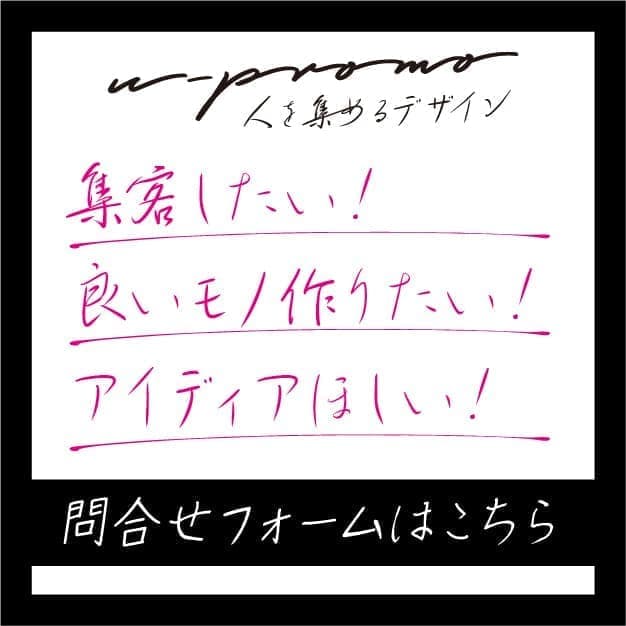 u-promo
人を集めるデザイン
集客したい!
良いモノ作りたい!
アイディアほしい!
問合せフォームはこちら